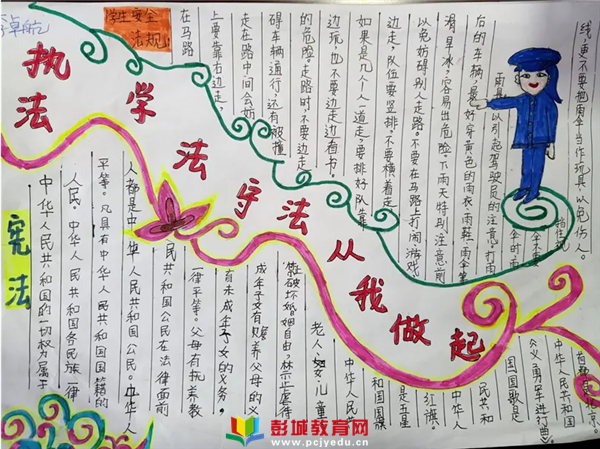 学生安全
法规
执法
学法守法从我做起
在马路
上要靠右边走,
走在路中间会妨
碍车辆通行,还有被撞
的危险。走路时,不要边走
边玩,也不要边走边看书。
如果是几个人一道走,要排好队靠
边走,队伍要竖排,不要横着走,
以免妨碍别人走路。不要在马路上打闹游戏,
滑旱冰,容易出危险。下雨天特别注意前
后的车辆,最好穿黄色的雨衣、雨鞋、雨伞等
雨具,以引起驾驶员的注意。打雨
伞时雨
伞不要
挡住视
线,更不要把雨伞当作玩具,以免伤人。
宪法
中华人民共和国的一切权力属于
人民。中华人民共和国各民族一律
平等。凡具有中华人民共和国国籍的
人都是中华人民共和国公民。中华人
民共和国公民在法律面前
一律平等。父母有抚养教
育未成年子女的义务。
成年子女有赡养父母的义
破坏婚姻自由,禁止虐待
老人、妇女、儿童
中华人民
和国国旗
是五星
红旗
中华人
民共和
国国歌是
《义勇军进行曲》
中华人民共和国
首都是北京。
彭城教育网
www.pcjyedu.cn